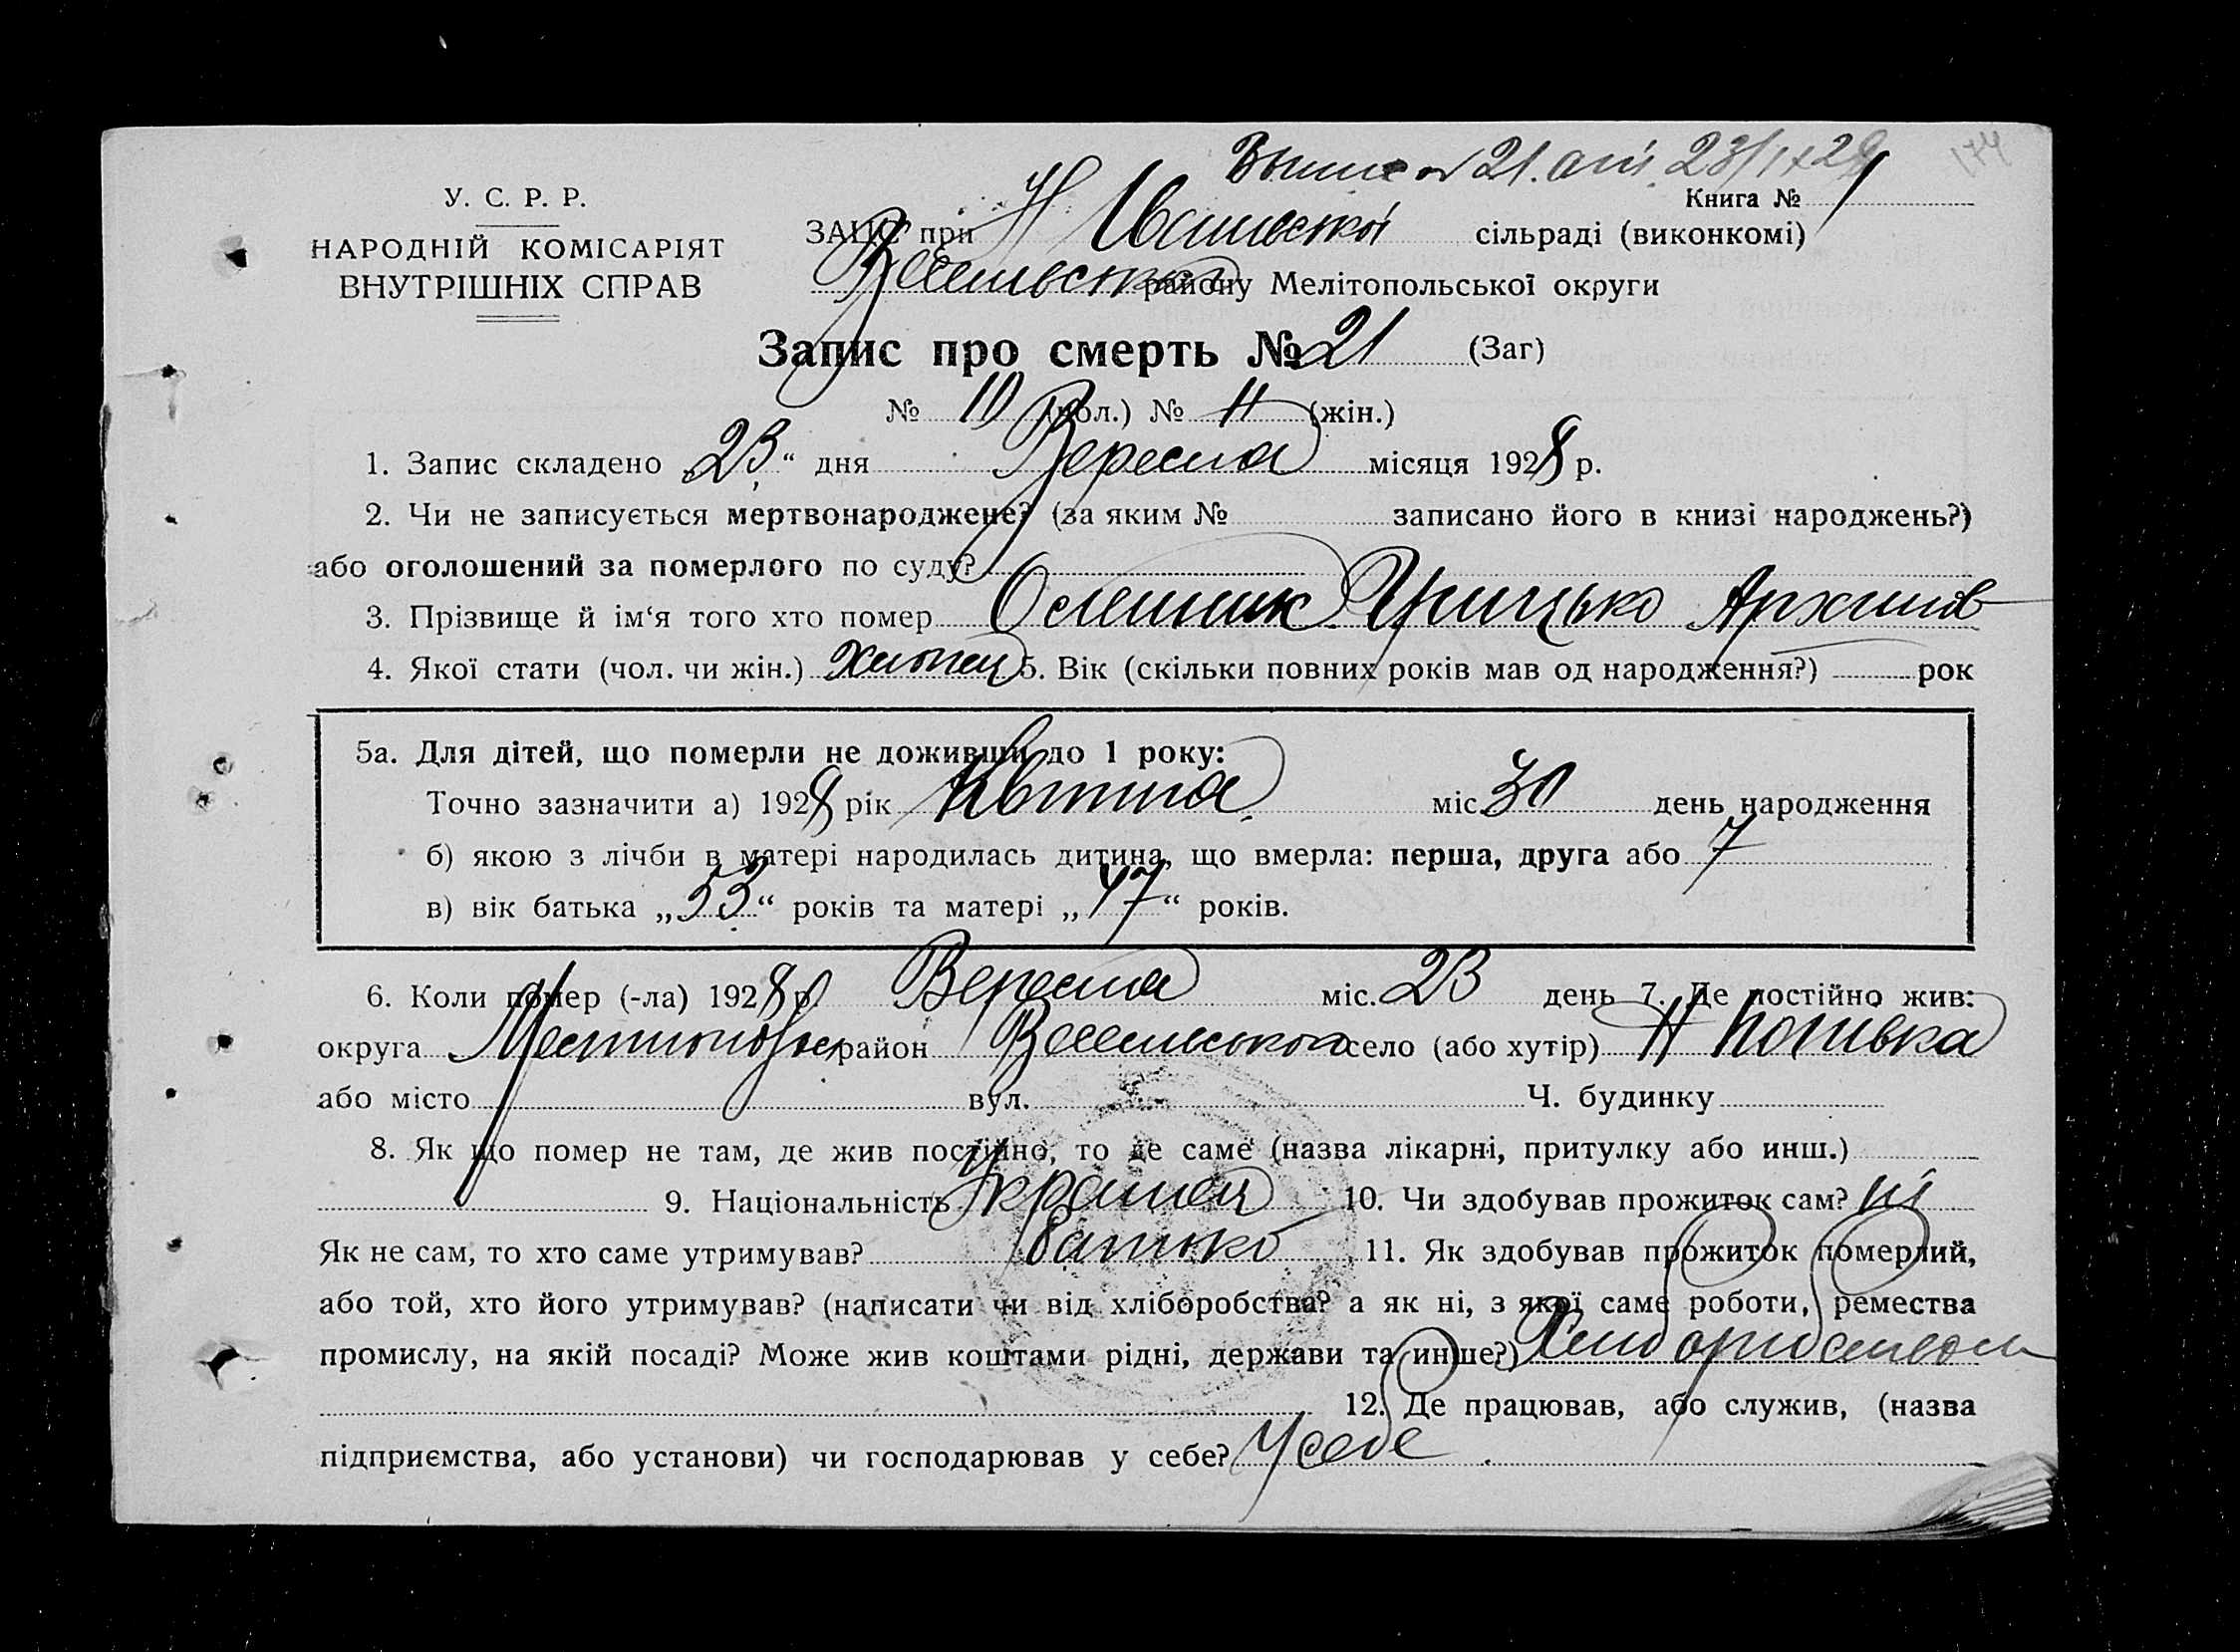 21. 23/IX 28 174
У. С. Р. Р.
Книга № 1
НАРОДНІЙ КОМІСАРІЯТ
ВНУТРІШНІХ СПРАВ
ЗАЦС при Н сільраді (виконкомі)
району Мелітопольської округи
Запис про смерть № 21 (Заг)
№ 10 (чол.) № 11 (жін.)
1. Запис складено „23“ дня Вересня місяця 1928 р.
2. Чи не записується мертвонароджене? (за яким № записано його в книзі народжень?)
або оголошений за померлого по суду?
3. Прізвище й ім‘я того хто помер Грицько Архипов
4. Якої стати (чол. чи жін.) хлопец 5. Вік (скільки повних років мав од народження?) рок
5а. Для дітей, що померли не доживши до 1 року:
Точно зазначити а) 1928 рік Квітня міс 30 день народження
б) якою з лічби в матері народилась дитина, що вмерла: перша, друга або 7
в) вік батька „53“ років та матері „47“ років.
6. Коли помер (-ла) 1928 р. Вересня міс. 23 день 7. Де постійно жив:
округа район село (або хутір) Н
або місто вул. Ч. будинку
8. Як що помер не там, де жив постійно, то де саме (назва лікарні, притулку або инш.)
9. Національність Украинец 10. Чи здобував прожиток сам? ні
Як не сам, то хто саме утримував? батько 11. Як здобував прожиток померлий,
або той, хто його утримував? (написати чи від хліборобства? а як ні, з якої саме роботи, ремества
промислу, на якій посаді? Може жив коштами рідні, держави та инше?) Хлиборобством
12. Де працював, або служив, (назва
підприємства, або установи) чи господарював у себе? У себе